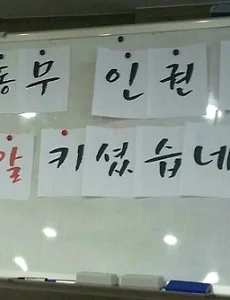 동무 인권
알 키셨습네